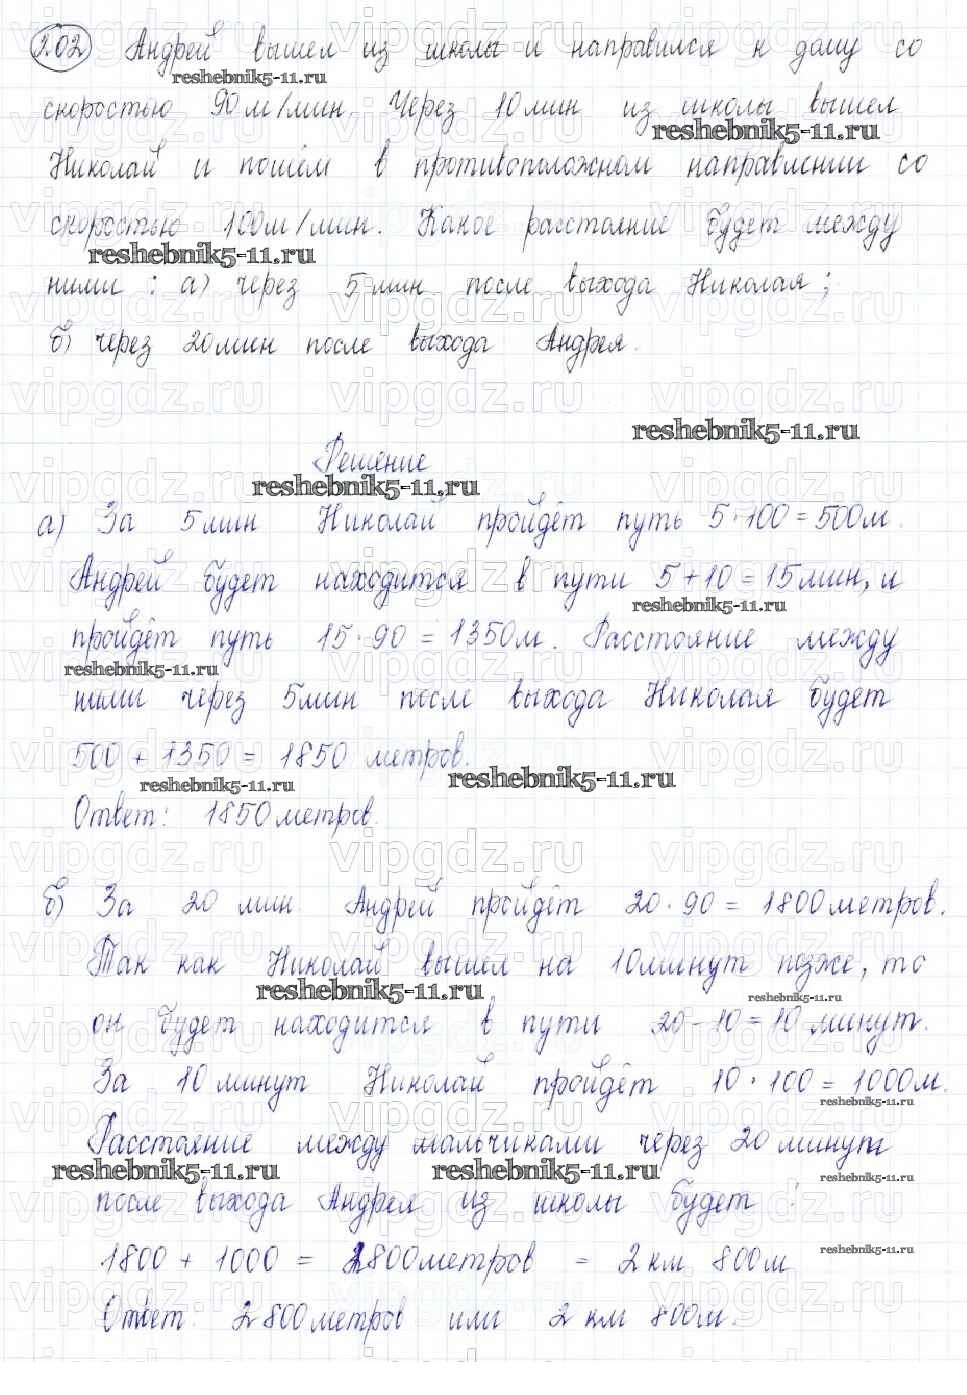 1.02 Андрей вышел из школы и направился к дому со
reshebnik5-11.ru
скоростью 90 м/мин. Через 10 мин из школы вышел
reshebnik5-11.ru
Николай и пошёл в противоположном направлении со
скоростью 100 м/мин. Какое расстояние будет между
reshebnik5-11.ru
ними : а) через 5 мин после выхода Николая ;
б) через 20 мин после выхода Андрея.
reshebnik5-11.ru
Решение
reshebnik5-11.ru
а) За 5 мин Николай пройдёт путь 5 · 100 = 500 м.
Андрей будет находится в пути 5 + 10 = 15 мин, и
reshebnik5-11.ru
пройдёт путь 15 · 90 = 1350 м. Расстояние между
reshebnik5-11.ru
ними через 5 мин после выхода Николая будет
500 + 1350 = 1850 метров.
reshebnik5-11.ru reshebnik5-11.ru
Ответ: 1850 метров.
vipgdz.ru vipgdz.ru vipgdz.ru
б) За 20 мин. Андрей пройдёт 20 · 90 = 1800 метров.
Так как Николай вышел на 10 минут позже, то
reshebnik5-11.ru reshebnik5-11.ru
он будет находится в пути 20 - 10 = 10 минут.
За 10 минут Николай пройдёт 10 · 100 = 1000 м.
reshebnik5-11.ru
Расстояние между мальчиками через 20 минут
reshebnik5-11.ru reshebnik5-11.ru reshebnik5-11.ru
после выхода Андрея из школы будет :
1800 + 1000 = 2800 метров = 2 км 800 м
reshebnik5-11.ru
Ответ. 2800 метров или 2 км 800 м.